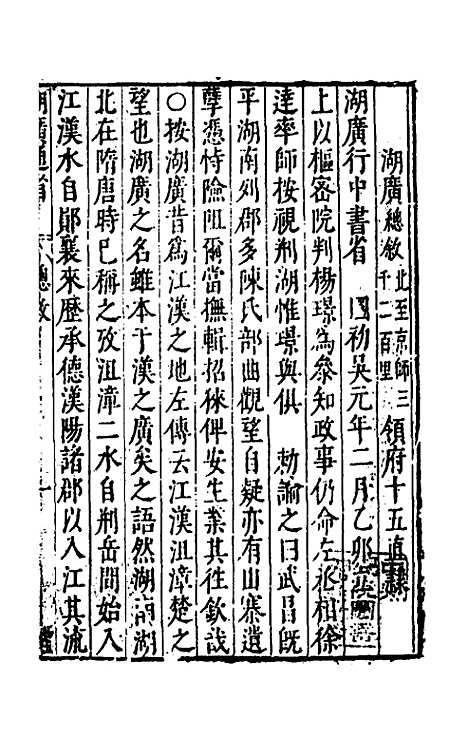 湖廣總敘北至京師三千二百里領府十五直隸
湖廣行中書省 國初吳元年二月乙卯
上以樞密院判楊璟為叅知政事仍命左丞相徐
達率師按視荆湖惟璟與俱 勅諭之曰武昌旣
平湖南列郡多陳氏部曲觀望自疑亦有山寨遺
孽憑恃險阻爾當撫輯招徠俾安生業其往欽哉
○按湖廣昔爲江漢之地左傳云江漢沮漳楚之
望也湖廣之名雖本于漢之廣矣之語然湖南湖
北在隋唐時巳稱之攷沮漳二水自荆岳間始入
江漢水自鄖襄來歷承德漢陽諸郡以入江其流
湖廣通省 總敘